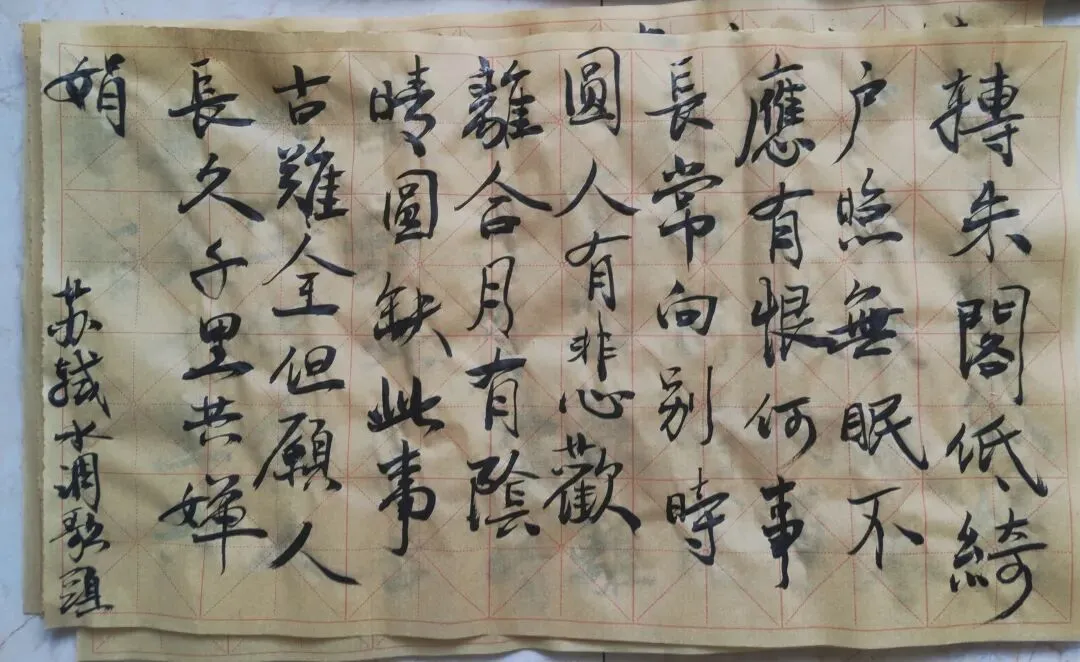 轉朱閣低綺
户照無眠不
應有恨何事
長常向别時
圓人有悲歡
離合月有陰
晴圓缺此事
古難全但願人
長久千里共嬋
娟
苏軾水調歌頭